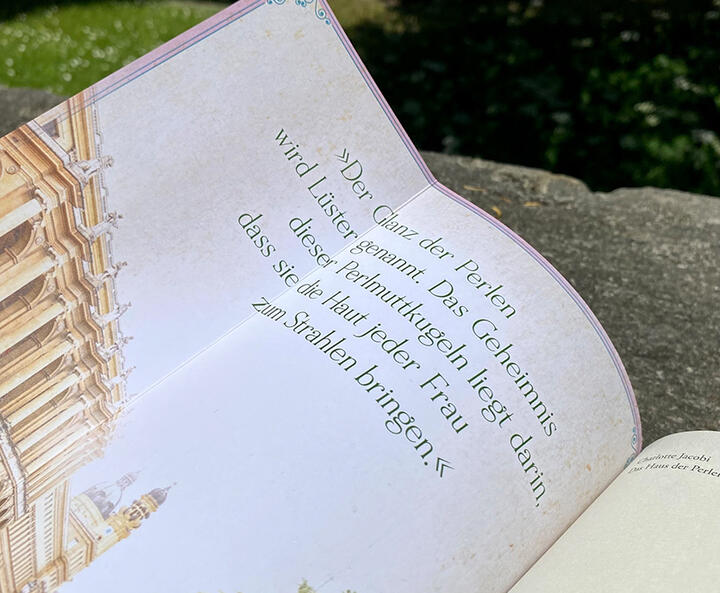 »Der Glanz der Perlen
wird Lüster genannt. Das Geheimnis
dieser Perlmuttkugeln liegt darin,
dass sie die Haut jeder Frau
zum Strahlen bringen.«
Charlotte Jacobi
Das Haus der Perlen